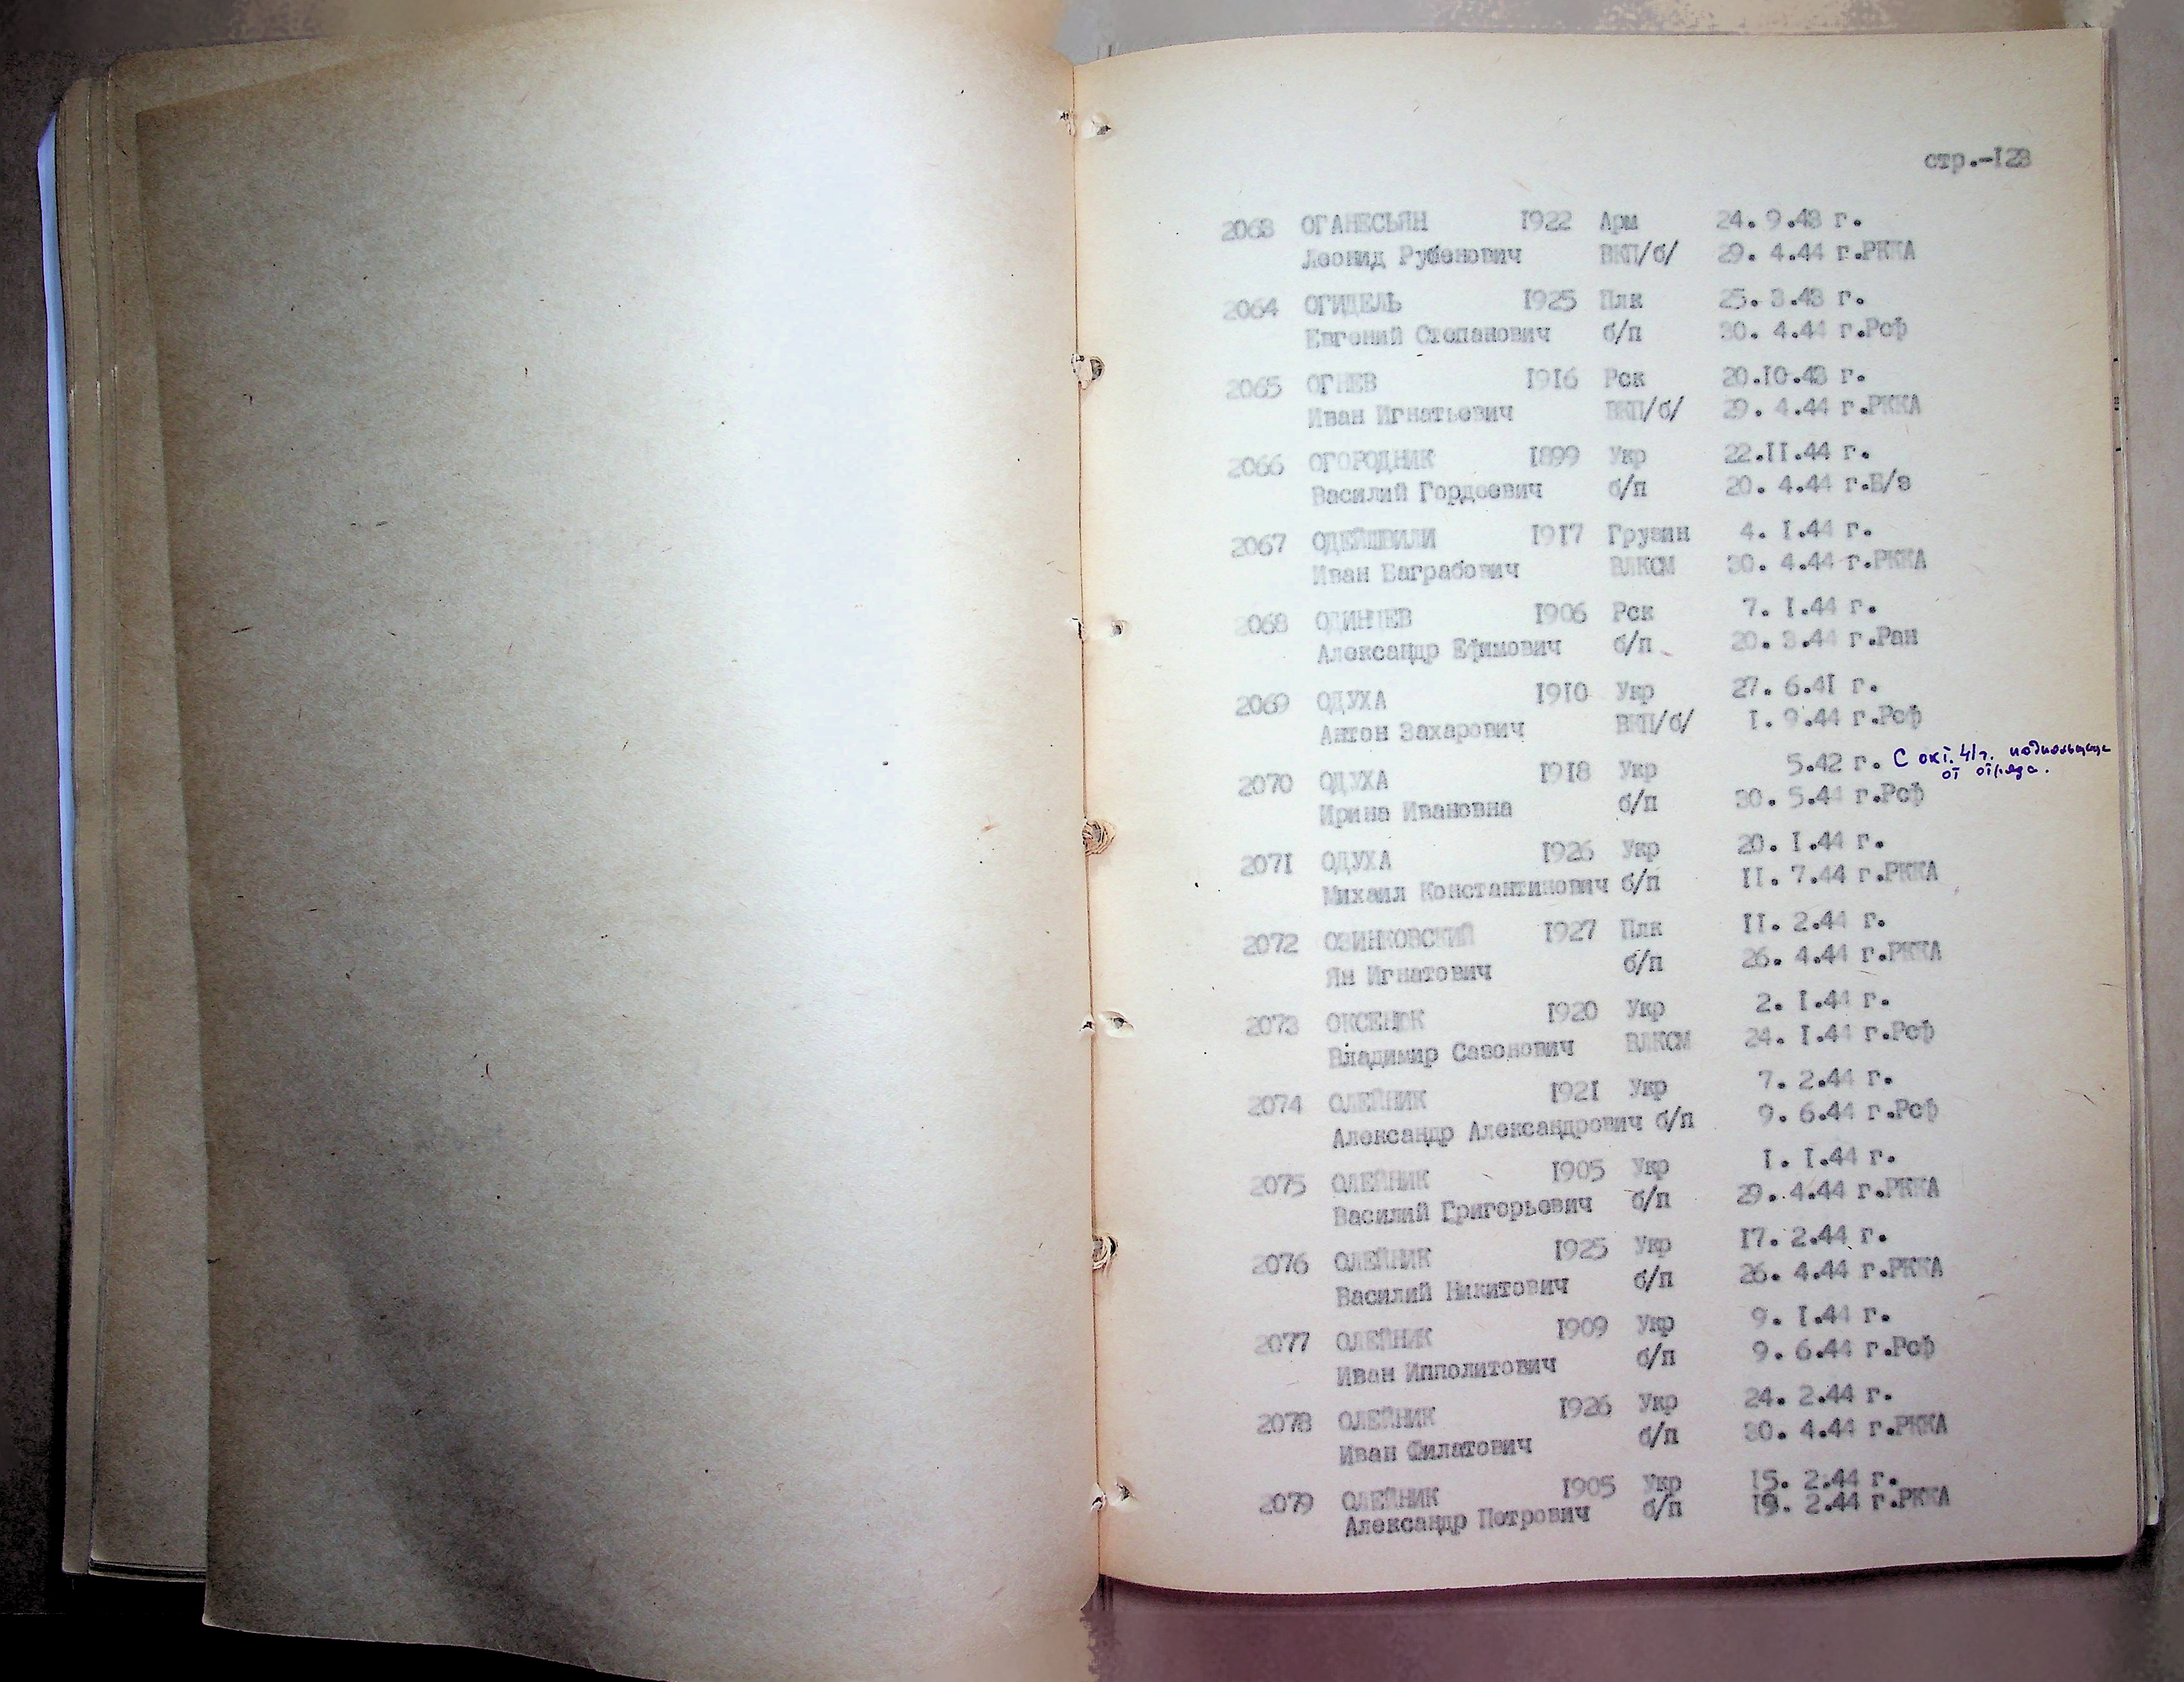 стр.-128
2063 ОГАНЕСЬЯН 1922 Арм 24. 9.43 г.
Леонид Рубенович ВКП/б/ 29. 4.44 г.РККА
2064 ОГИДЕЛЬ 1925 Плк 25. 3.43 г.
Евгений Степанович б/п 30. 4.44 г.Рсф
2065 ОГНЕВ 1916 Рск 20.10.43 г.
Иван Игнатьевич ВКП/б/ 29. 4.44 г.РККА
2066 ОГОРОДНИК 1899 Укр 22.II.44 г.
Василий Гордеевич б/п 20. 4.44 г.Б/з
2067 ОДЕЙШВИЛИ 1917 Грузин 4. I.44 г.
Иван Баграбович ВЛКСМ 30. 4.44 г.РККА
2068 ОДИНЦЕВ 1906 Рск 7. I.44 г.
Александр Ефимович б/п 20. 3.44 г.Ран
2069 ОДУХА 1910 Укр 27. 6.41 г.
Антон Захарович ВКП/б/ I. 9.44 г.Рсф
2070 ОДУХА 1918 Укр 5.42 г. С окт. 41г. подпольщица
от отряда.
Ирина Ивановна б/п 30. 5.44 г.Рсф
2071 ОДУХА 1926 Укр 20. I.44 г.
Михаил Константинович б/п II. 7.44 г.РККА
2072 ОЗИНКОВСКИЙ 1927 Плк II. 2.44 г.
Ян Игнатович б/п 26. 4.44 г.РККА
2073 ОКСЕНЮК 1920 Укр 2. I.44 г.
Владимир Сазонович ВЛКСМ 24. I.44 г.Рсф
2074 ОЛЕЙНИК 1921 Укр 7. 2.44 г.
Александр Александрович б/п 9. 6.44 г.Рсф
2075 ОЛЕЙНИК 1905 Укр I. I.44 г.
Василий Григорьевич б/п 29. 4.44 г.РККА
2076 ОЛЕЙНИК 1925 Укр 17. 2.44 г.
Василий Никитович б/п 26. 4.44 г.РККА
2077 ОЛЕЙНИК 1909 Укр 9. I.44 г.
Иван Ипполитович б/п 9. 6.44 г.Рсф
2078 ОЛЕЙНИК 1926 Укр 24. 2.44 г.
Иван Филатович б/п 30. 4.44 г.РККА
2079 ОЛЕЙНИК 1905 Укр 15. 2.44 г.
Александр Петрович б/п 19. 2.44 г.РККА